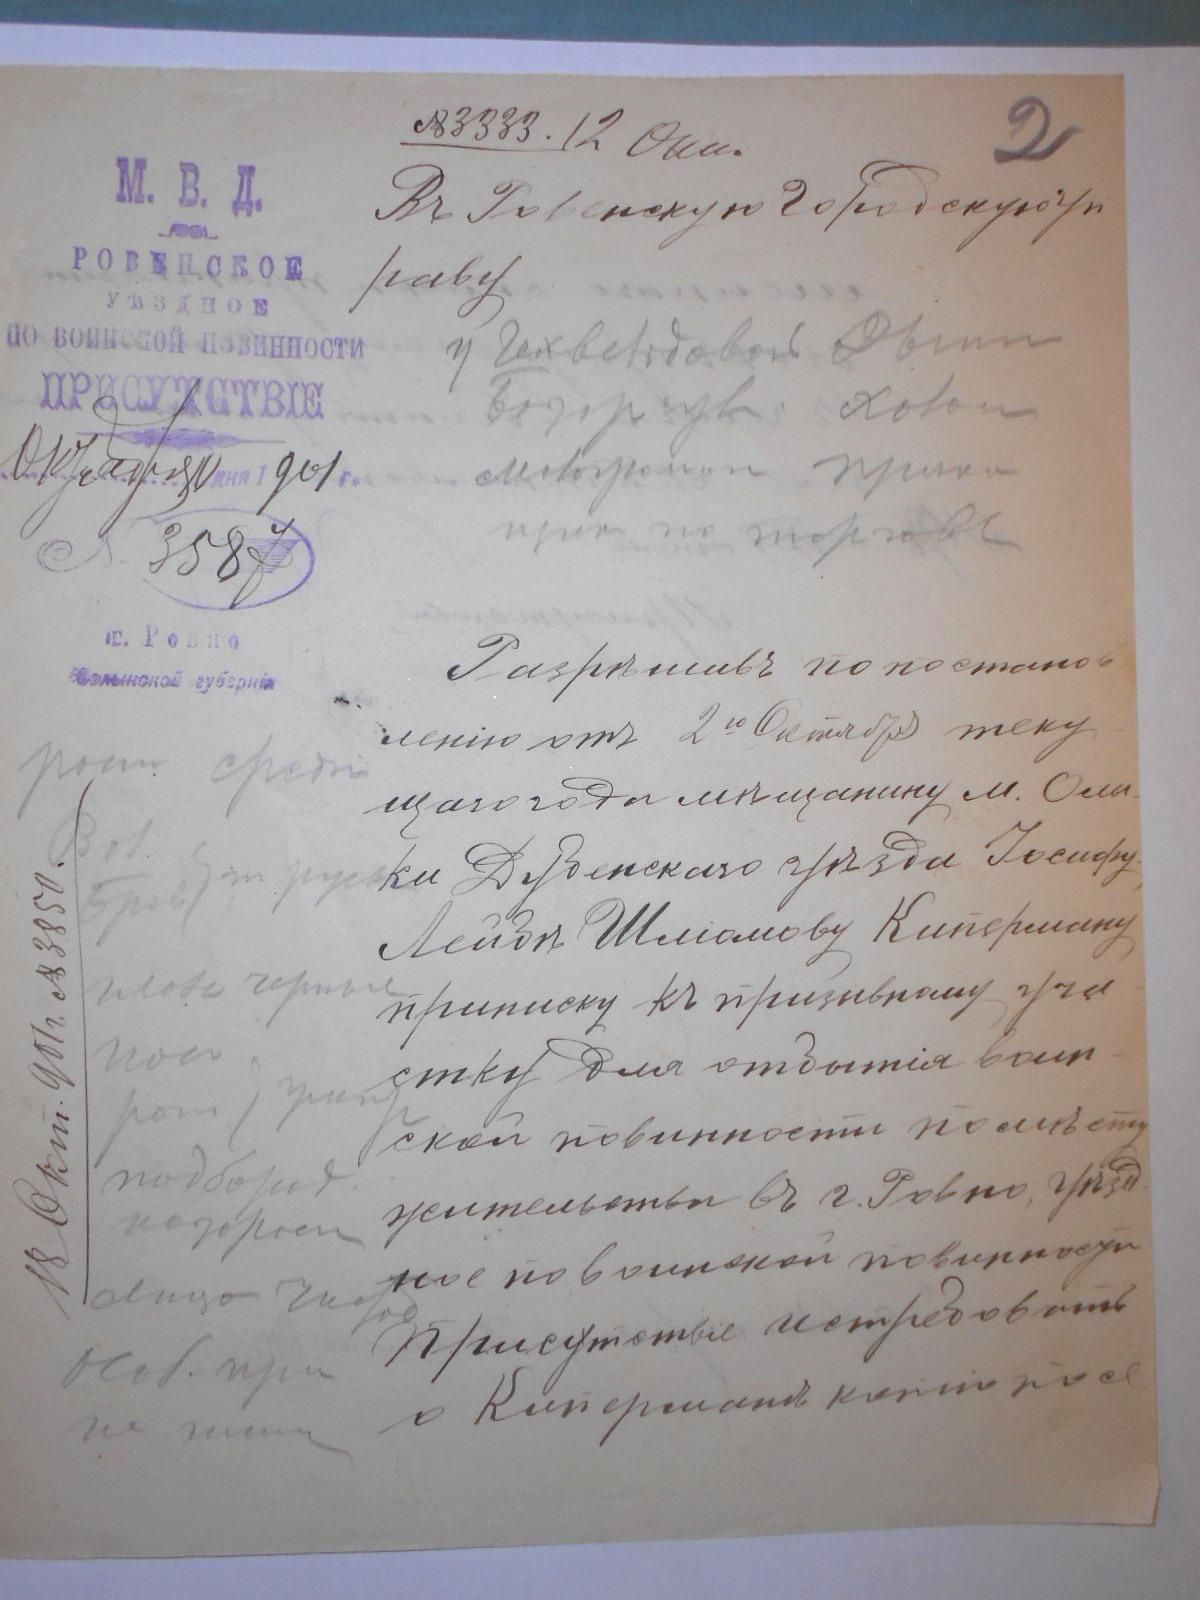 № 3333. 12 Окт.
2
М. В. Д.
РОВЕНСКОЕ
УѢЗДНОЕ
ПО ВОИНСКОЙ ПОВИННОСТИ
ПРИСУТСТВІЕ
Октября дня 1901 г.
№ 3587
г. Ровно
Волынской губерніи
Въ Ровенскую Городскую Уп
раву
у
Базарную
по торговл
Разрѣшивъ по постанов
ленію отъ 2го Октября теку
щаго года мѣщанину м. Олы-
ки Дубенскаго уѣзда Іосифу
Лейбѣ Шліомову Киперману
приписку къ призывному уча-
стку для отбытія воин-
ской повинности по мѣсту
жительства въ г. Ровно, уѣзд-
ное по воинской повинности
Присутствіе истребовать
о Киперманѣ копію посе
рост средн
Вол.
Бров } т русы
глаза черные
нос
рот
подбород.
лицо чистое
Особ. при
не
18 Окт. 901 г. № 3850.